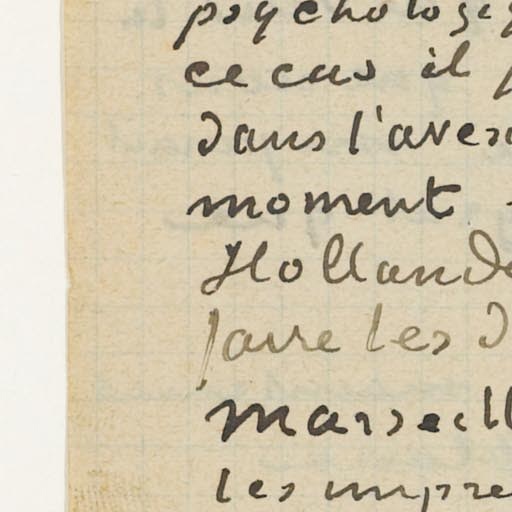 psychologi
ce cas il
dans l'aven
moment
Hollande
faire les d
Marseill
les impre